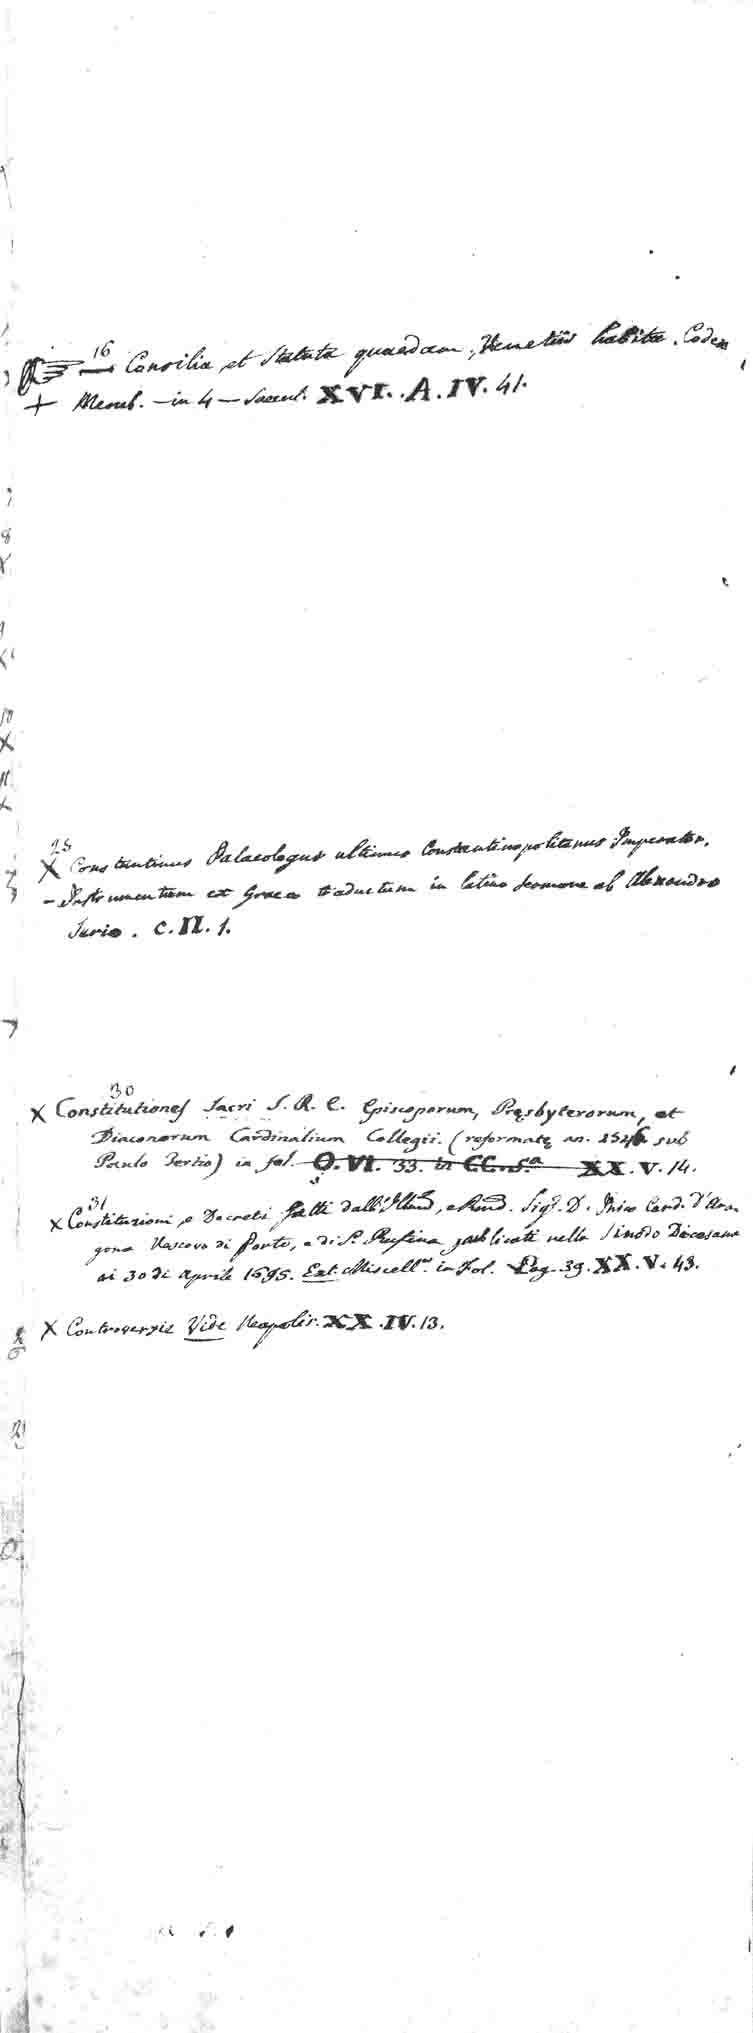 16
☞ — Consilia, et Statuta quaedam, Venetiis habita. Codex
+ Memb. — in 4 — Saecul. XVI. A. IV. 41.
28
X Constantinus Palaeologus ultimus Constantinopolitanus Imperator.
— Instrumentum ex Graeco traductum in latino sermone ab Alexandro
C. II. 1.
30
X Constitutiones Sacri S. R. E. Episcoporum, Pręsbyterorum, et
Diaconorum Cardinalium Collegii. (reformatę an. 1546 sub
Paulo Tertio) in fol. O. VI. 33. in CC. S.a XX. V. 14.
31
X Constituzioni, e Decreti fatti dall' Illmo, e Rmd. Sigr. D. Inico Card. d'Ara-
gona Vescovo di Porto, e di S. Rufina publicati nella Sinodo Diocesana
ai 30 di Aprile 1695. Ext. Miscell. in Fol. Pag. 39. XX. V. 43.
X Controversie Vide Neapolis. XX. IV. 13.